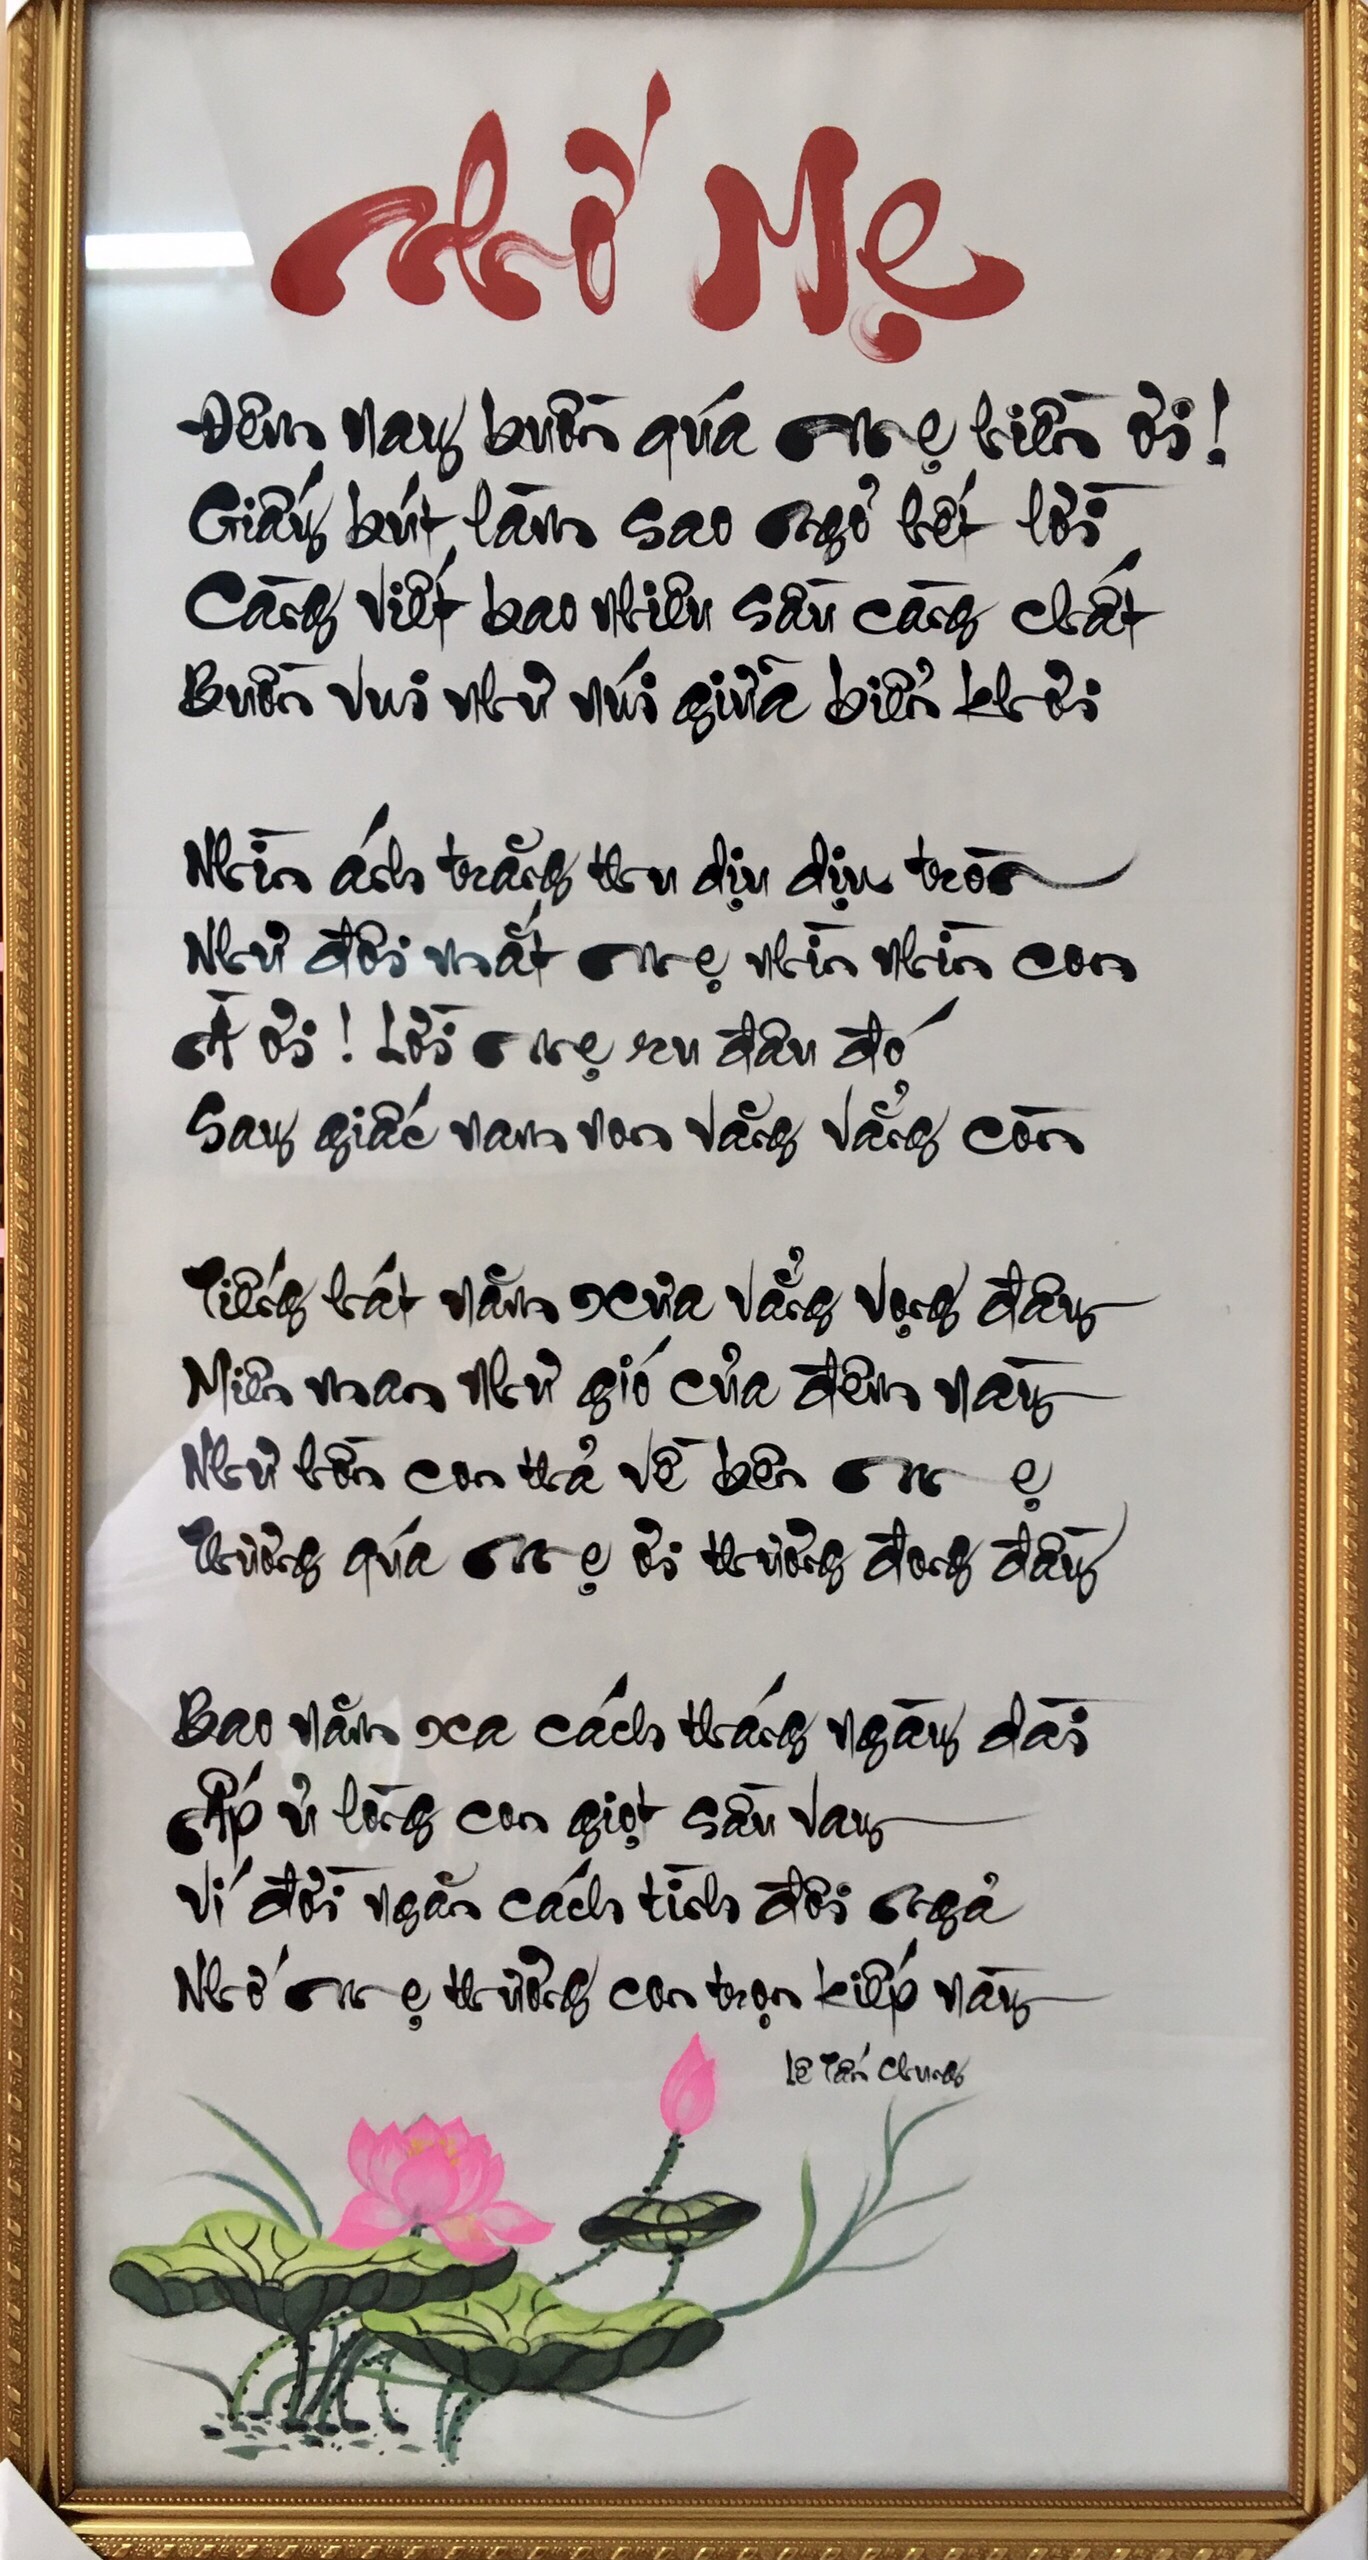 Nhớ Mẹ
Đêm nay buồn quá Mẹ hiền ơi!
Giấy bút làm sao ngỏ hết lời
Càng viết bao nhiêu sầu càng chất
Buồn vui như núi giữa biển khơi
Nhìn ánh trăng thu dịu dịu tròn
Như đôi mắt Mẹ nhìn nhìn con
À ơi! Lời Mẹ ru đâu đó
Say giấc nam non vẳng vẳng còn
Tiếng hát năm xưa vẳng vọng đây
Miên man như gió của đêm nay
Như hồn con thả về bên Mẹ
Thương quá Mẹ ơi thương đong đầy
Bao năm xa cách tháng ngày dài
Ấp ủ lòng con giọt sầu vay
Ví đời ngăn cách tình đôi ngả
Nhớ Mẹ thương con trọn kiếp này
Lê Tấn Chung